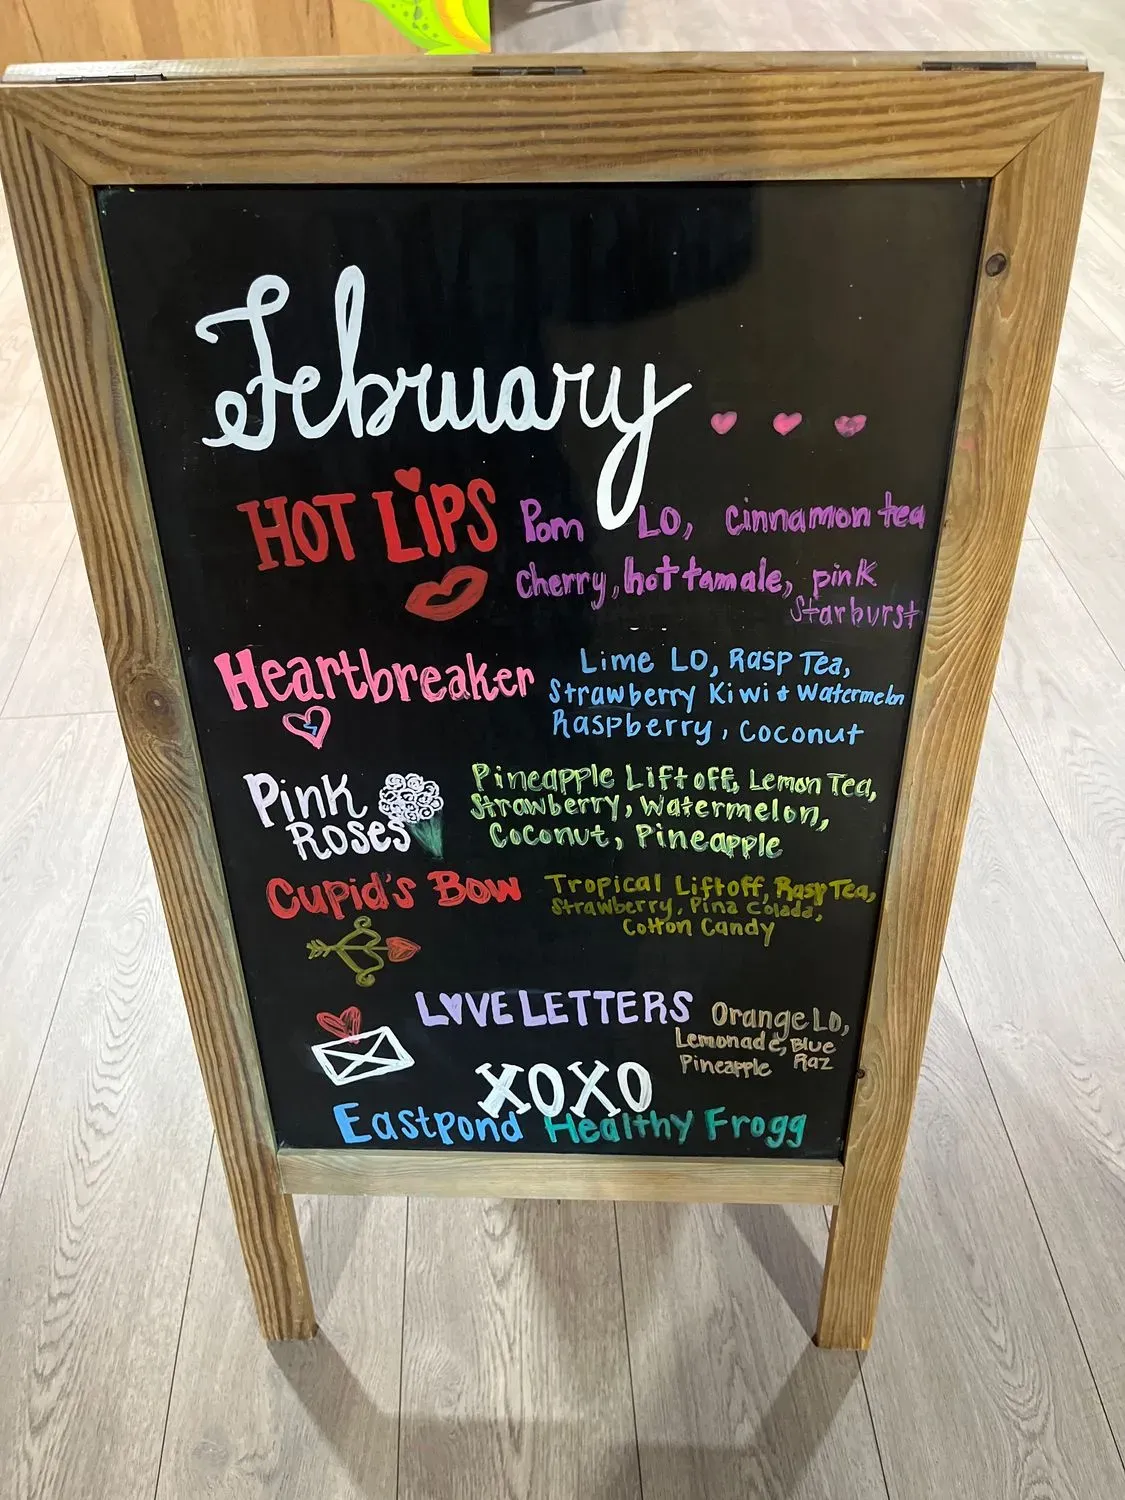 February
HOT LIPS
Pom LO, cinnamon tea
cherry, hot tamale, pink
starburst
Heartbreaker
Lime LO, Rasp Tea,
Strawberry Kiwi & Watermelon
Raspberry, Coconut
Pink
Roses
Pineapple Liftoff, Lemon Tea,
Strawberry, Watermelon,
Coconut, Pineapple
Cupid's Bow
Tropical Liftoff, Rasp Tea,
Strawberry, Pina Colada,
Cotton Candy
LOVE LETTERS
Orange LO,
Lemonade, Blue
Pineapple Raz
XOXO
Eastpond Healthy Frogg